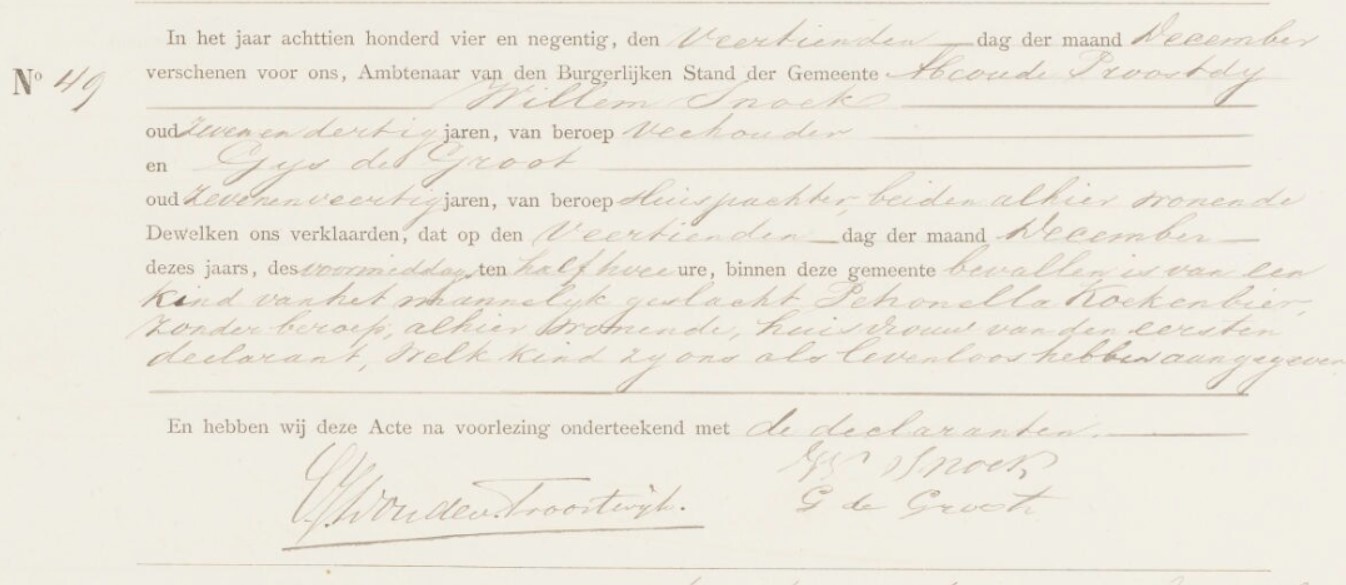 In het jaar achttien honderd vier en negentig, den Veertienden dag der maand December
No 49 verschenen voor ons, Ambtenaar van den Burgerlijken Stand der Gemeente Abcoude Proostdy
Willem Snoek
oud zevenendertig jaren, van beroep Veehouder
en Gys de Groot
oud zevenenveertig jaren, van beroep Huispachter, beiden alhier wonende
Dewelken ons verklaarden, dat op den Veertienden dag der maand December
dezes jaars, des voormiddags ten half twee ure, binnen deze gemeente bevallen is van een
kind van het mannelyk geslacht Petronella Kockenbier,
zonder beroep, alhier wonende, huisvrouw van den eersten
declarant, welk kind zy ons als levenloos hebben aangegeven
En hebben wij deze Acte na voorlezing onderteekend met de declaranten.
W Snoek
Troostwyk.
G de Groot